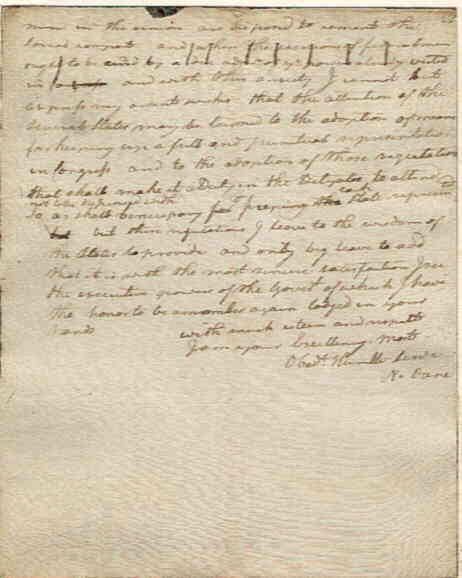 men in the union are disposed to cement the
and when the
ought to be cured by a
in and with this anxiety I cannot but
express my ardent wishes that the attention of the
several States may be turned to the adoption of means
for keeping up a full and punctual representation
in Congress and to the adoption of those regulations
that shall make it a Duty in the Delegates to attend
not be dispensed with
so as shall be necessary for the State
but these regulations I leave to the wisdom of
the States to provide and only beg leave to add
that it is with the most sincere satisfaction I see
the executive powers of the Govert of which I have
the honor to be a member again lodged in your
hands
with much esteem and respect
I am your Excellency most
Obedt. Humble Serve
N. Dane